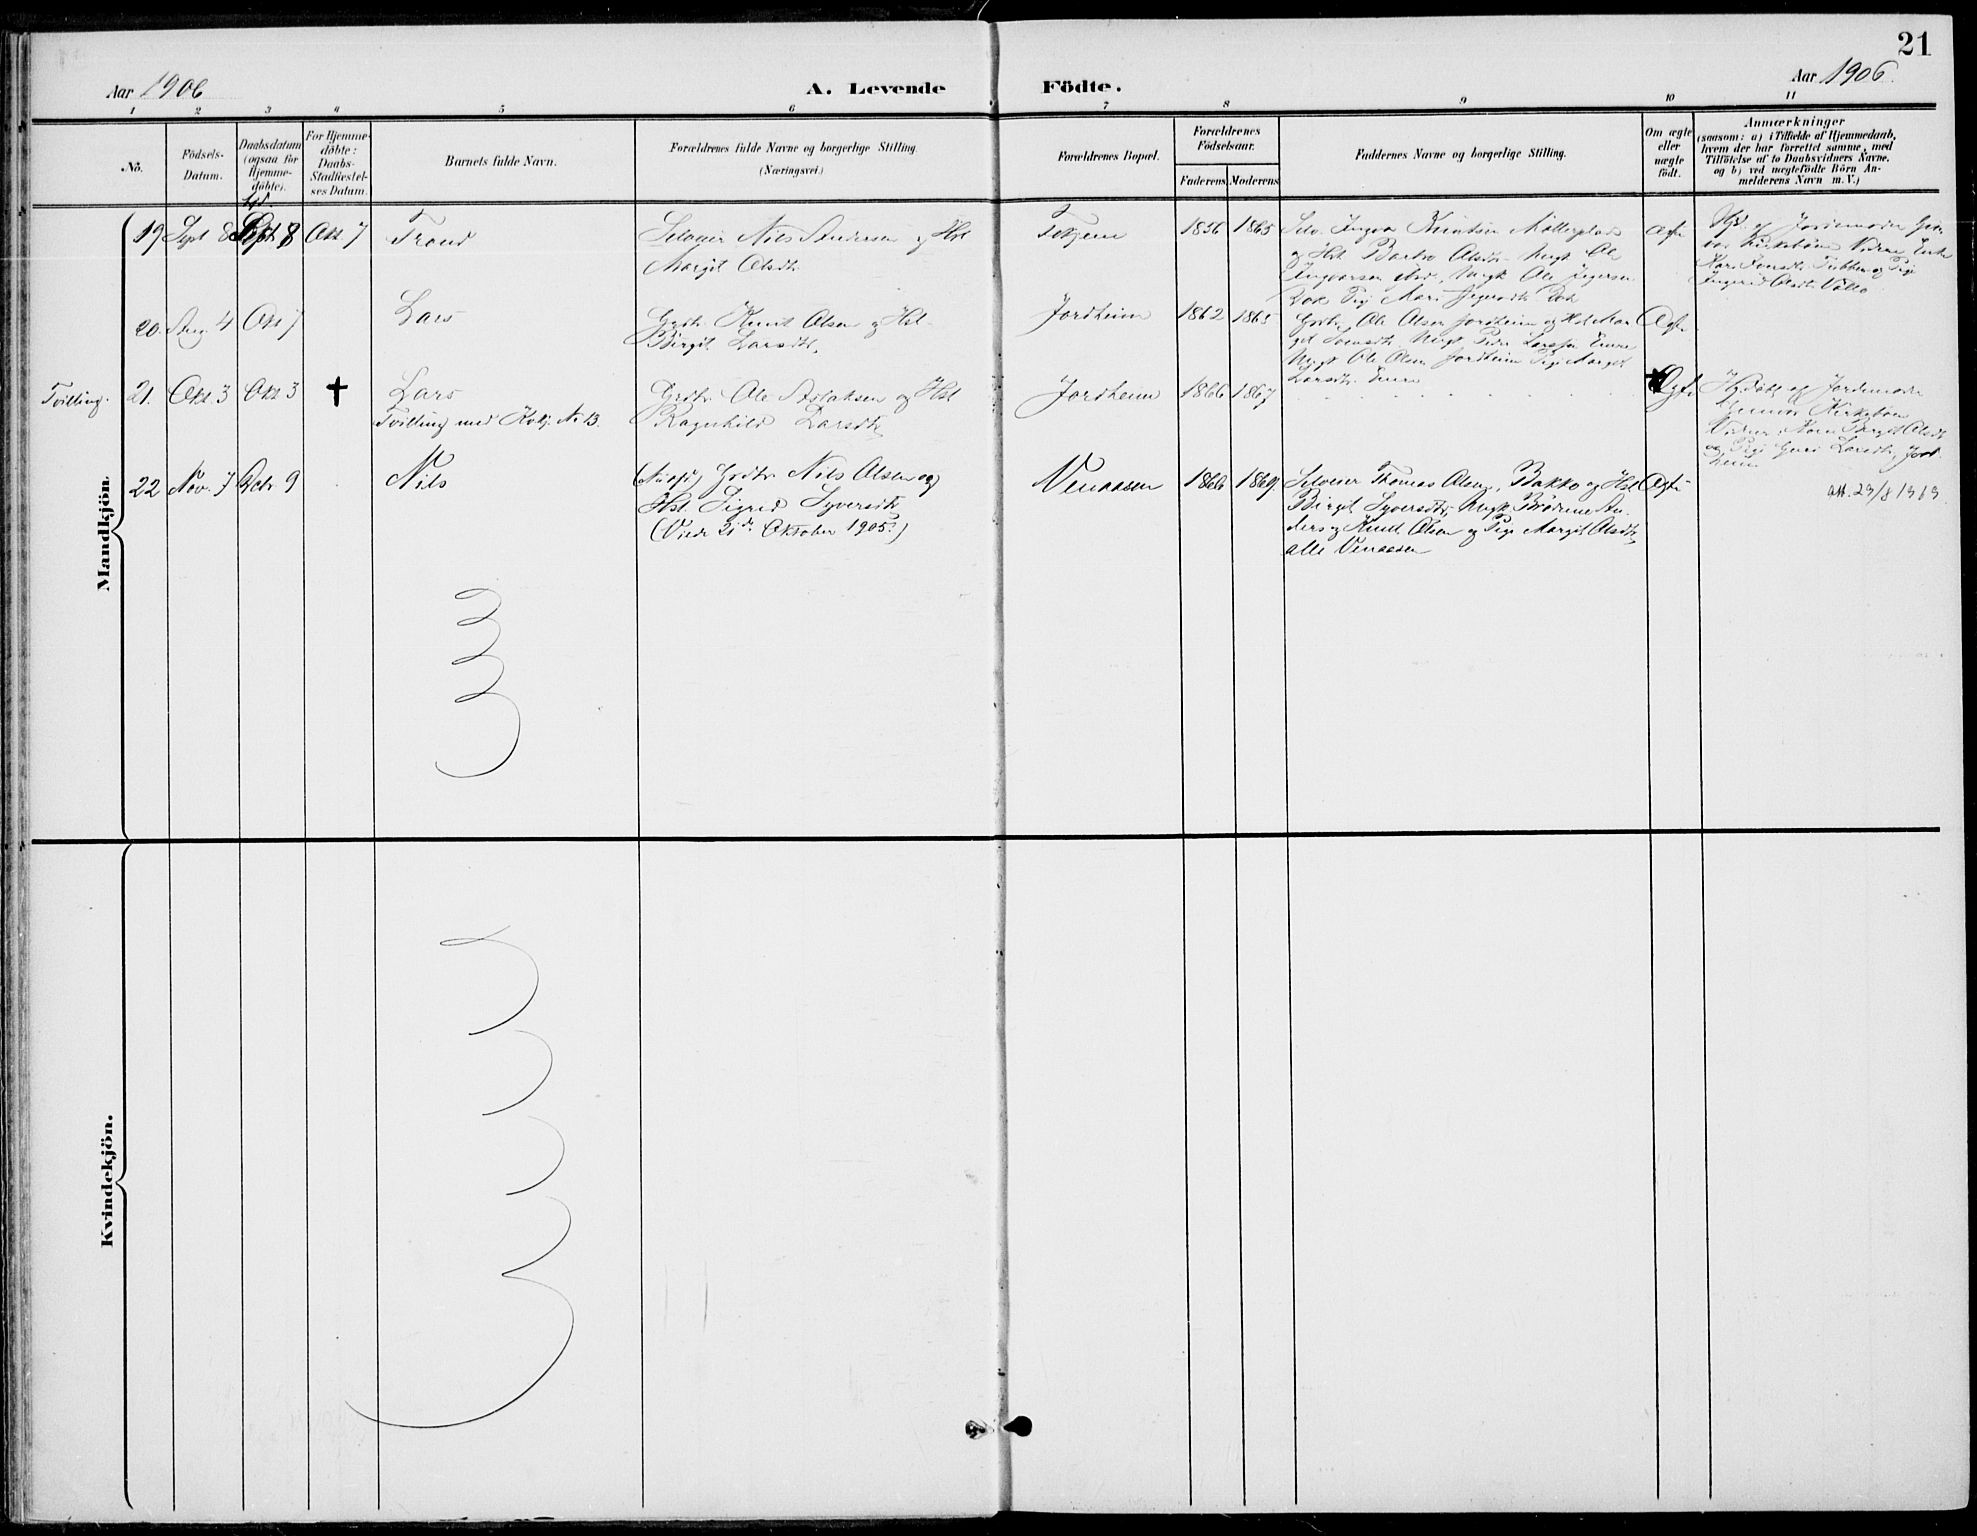 21
Aar 1906
A. Levende Födte.
Aar 1906.
1 2 3 4 5 6 7 8 9 10 11
No.
Födsels-
Datum.
Daabsdatum
(ogsaa for
Hjemme-
döbte).
For Hjemme-
döbte:
Daabs-
Stadfæstel-
ses Datum.
Barnets fulde Navn.
Forældrenes fulde Navne og borgerlige Stilling.
(Næringsvei.)
Forældrenes Bopæl.
Forældrenes
Födselsaar.
Faderens Moderens
Faddernes Navne og borgerlige Stilling.
Om ægte
eller
uægte
födt.
Anmærkninger
(saasom: a) i Tilfælde af Hjemmedaab,
hvem der har forrettet samme, med
Tilföielse af to Daabsvidners Navne,
og b) ved uægtefödte Börn An-
melderens Navn m. V.)
Mandkjön.
19 Sept 8 Sept 8 Okt 7
Trond
Selveier Nils Andersen og Hst
Margit Olsdtr
1856 1865
Selv. Ingvar Knutsen
og Hst Barbro Olsdtr Ungk Ole
Ingvarsen Ungk Ole
Pige Mari
Ægte
Hjd. af Jordemoder
Kirkebøen Enke
og Pige
Ingerid Olsdtr
20. Aug 4 Okt 7
Lars
Grdbr. Knut Olsen og Hst.
Birgit Larsdtr.
Jordheim
1862 1865
Grdbr Ole Olsen Jordheim og Hst Mar
git Ungk Peder Larsen
Ungk Ole Olsen Jordheim Pige Margit
Larsdtr
Ægte
Tvilling. 21. Okt. 3 Okt 3 †
Lars
Tvilling med Kvkj. No 13.
Grdbr. Ole Aslaksen og Hst
Ragnhild Larsdtr
Jordheim
1866 1867
Ægte
Hjdøbt af Jordemoder
Gunvor Kirkebøen
Birgit Olsdtr
og Pige Guri Larsdtr, Jord
heim
22 Nov. 7 9
Nils
Grdbr Nils Olsen og
Hst. Sigrid Syversdtr
(Viede 21de Oktober 1905.)
Venaasen
1866 1869.
Selveier Thomas Olsen, Bakko og Hst
Birgit Syversdtr, Ungk Brødrene An-
ders og Knut Olsen og Pige Margit Olsdtr
alle Venaasen
Ægte
att. 23/8 1963.
Kvindekjön.